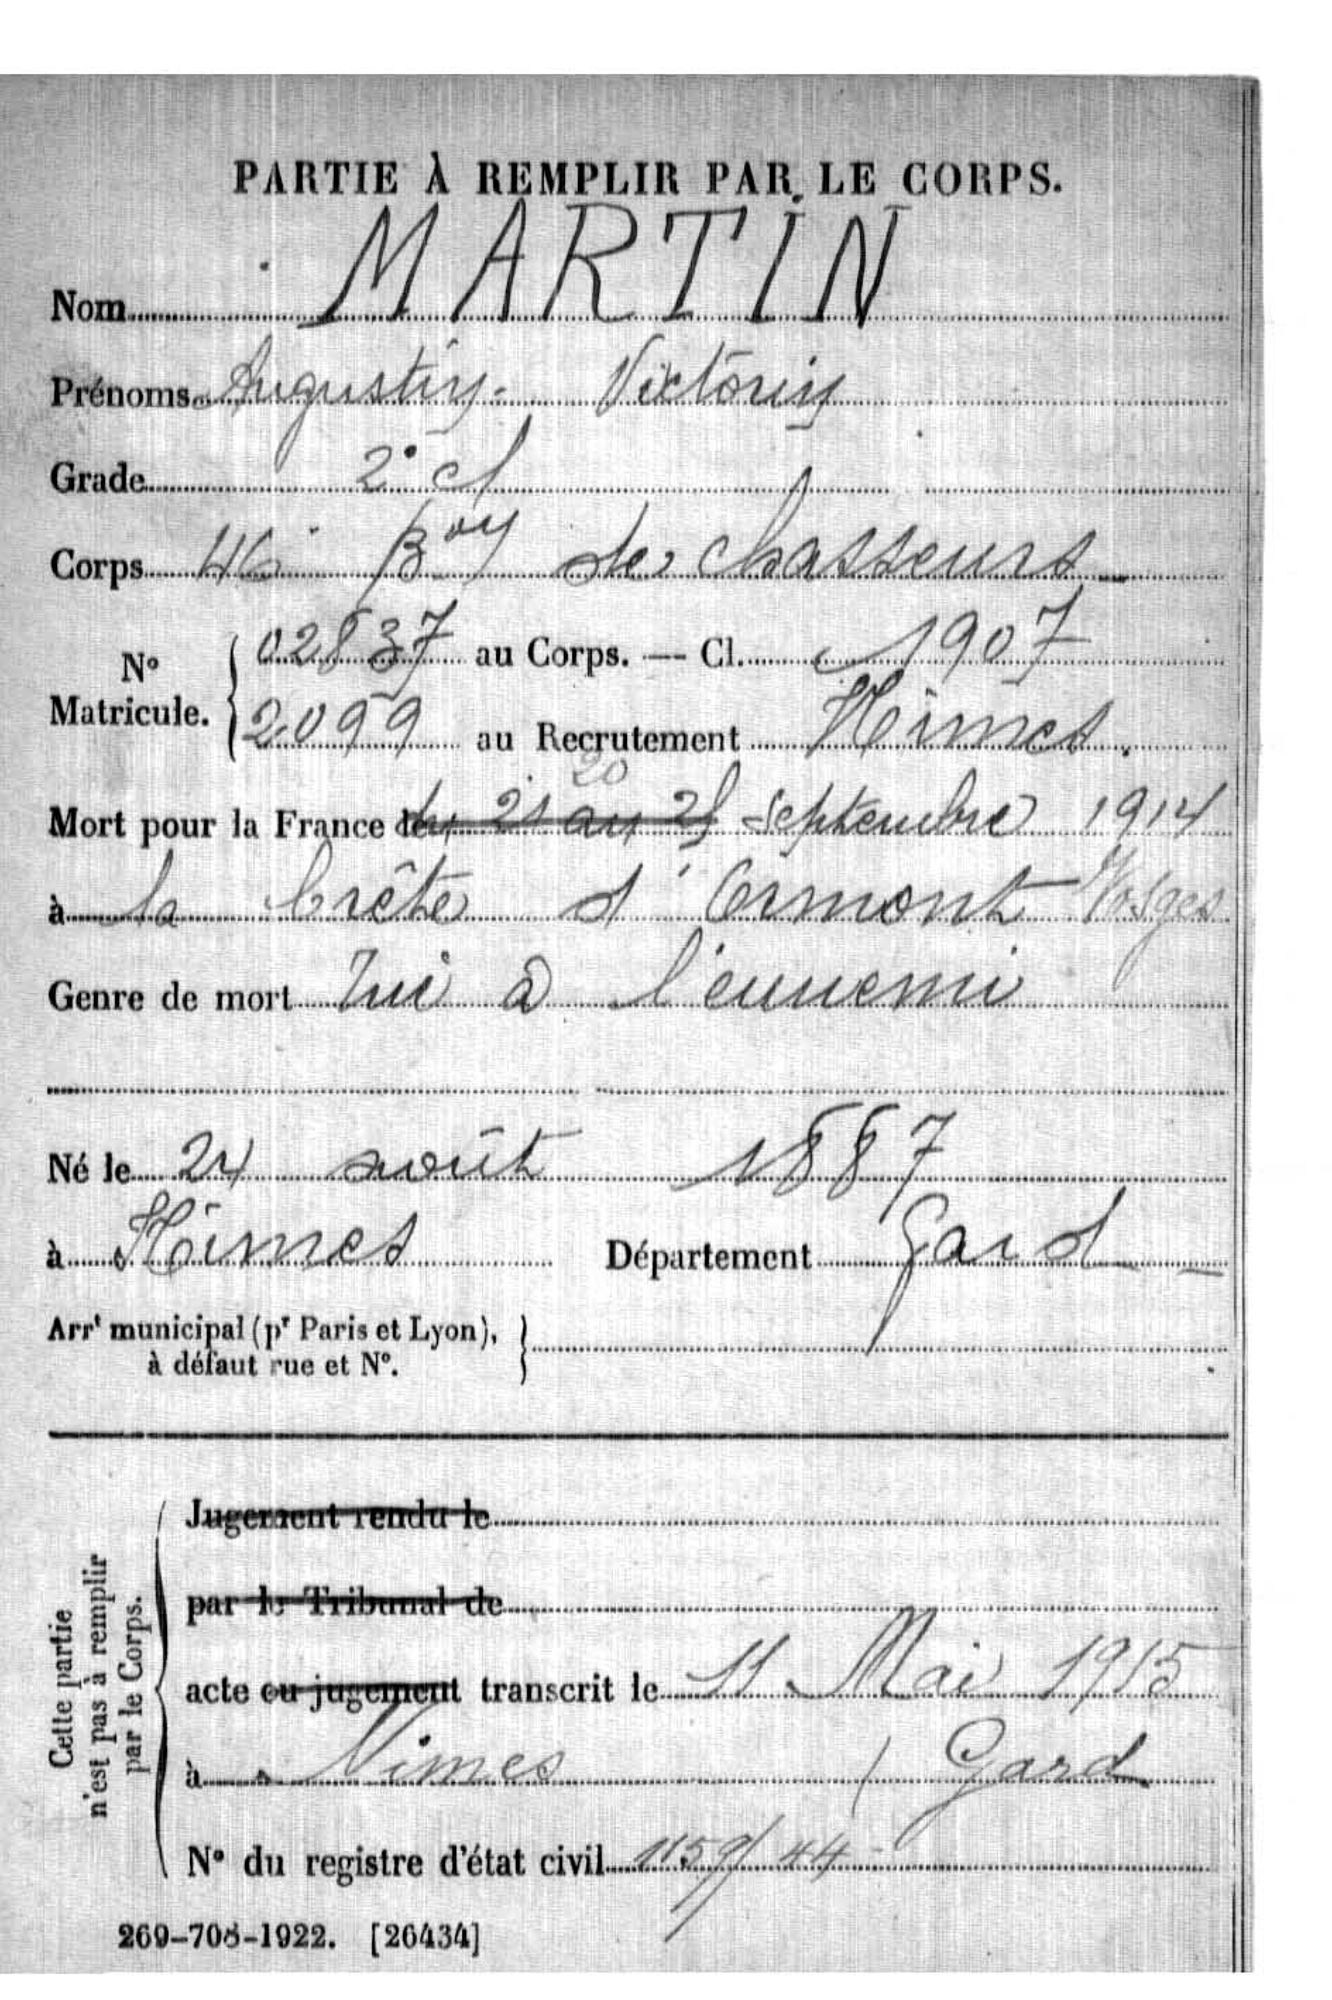 PARTIE À REMPLIR PAR LE CORPS.
Nom MARTIN
Prénoms Augustin Victorin
Grade 2e cl
Corps 46e Bon de chasseurs
N° Matricule. 02837 au Corps. — Cl. 1907
2099 au Recrutement Nîmes.
20
Mort pour la France le du 21 au 25 Septembre 1914
à la Crête d'Ormont Vosges
Genre de mort Tué à l'ennemi
Né le 24 août 1887
à Nîmes Département Gard
Arrt municipal (pr Paris et Lyon),
à défaut rue et N°.
Cette partie
n'est pas à remplir
par le Corps.
Jugement rendu le
par le Tribunal de
acte ou jugement transcrit le 11 Mai 1915
à Nimes (Gard
N° du registre d'état civil 1159/44
269-708-1922. [26434]